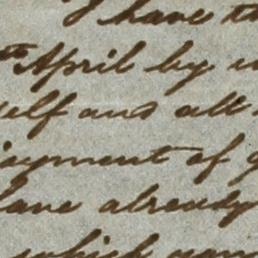 I have th
th April by
self and all
joyment of
have already
which